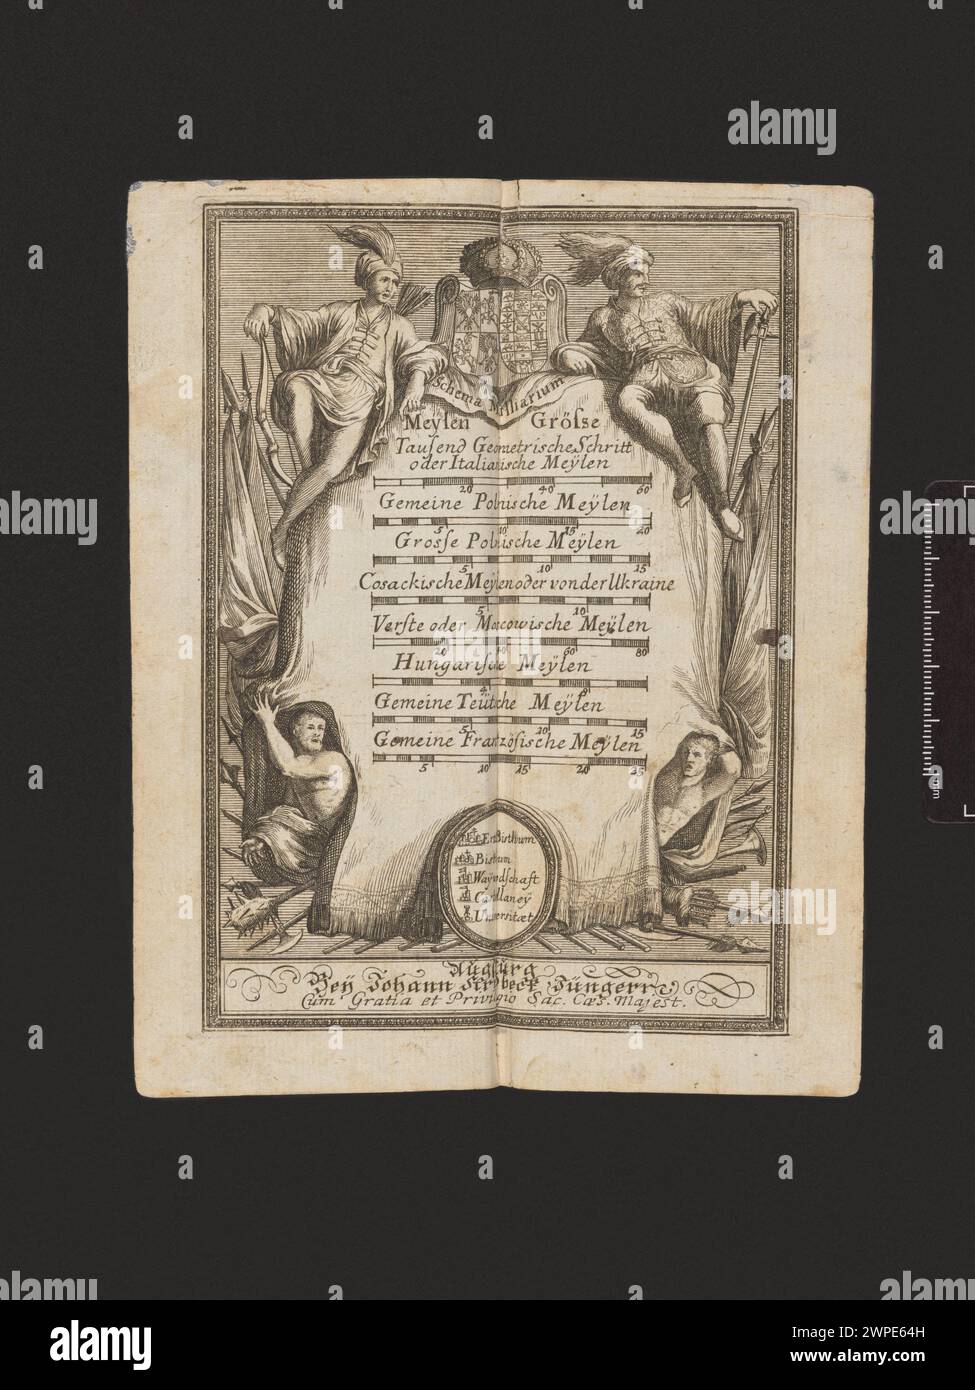 Schema Milliarium
Meÿlen Grösse
Tausend Geometrische Schritt
oder Italianische Meÿlen
20 40 60
Gemeine Polnische Meÿlen
5 10 15 20
Grosse Polnische Meÿlen
5 10 15
Cosackische Meÿlen oder von der Ukraine
5 10
Verste oder Moscowische Meÿlen
20 40 60 80
Hungarische Meÿlen
4 8
Gemeine Teütche Meÿlen
5 10 15
Gemeine Französische Meÿlen
5 10 15 20 25
ErtzBisthum
Bistum
Waywdschaft
Castllaney
Universitaet
Augspurg
Beÿ Johann Stridbeck Jüngern
Cum Gratia et Privilegio Sac. Cæs. Majest.
alamy
Image ID: 2WPE64H
www.alamy.com